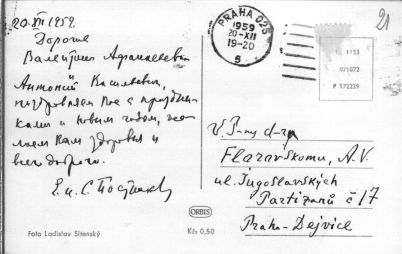 20.XII 1959.
Дорогие
Валентина Афанасьевна
Антоний Васильевич,
поздравляем Вас с праздни-
ками и Новым годом, же-
лаем Вам здоровья и
всего доброго.
Е. и С.
PRAHA 025
1959
20-XII
19-20
5
1153
071072
P 172229
21
V. P-nu d-ru
Flarovskomu, A.V.
ul. Jugoslavských
Partizanů č 17
Praha-Dejvice
ORBIS
Foto Ladislav Sitenský
Kčs 0,50